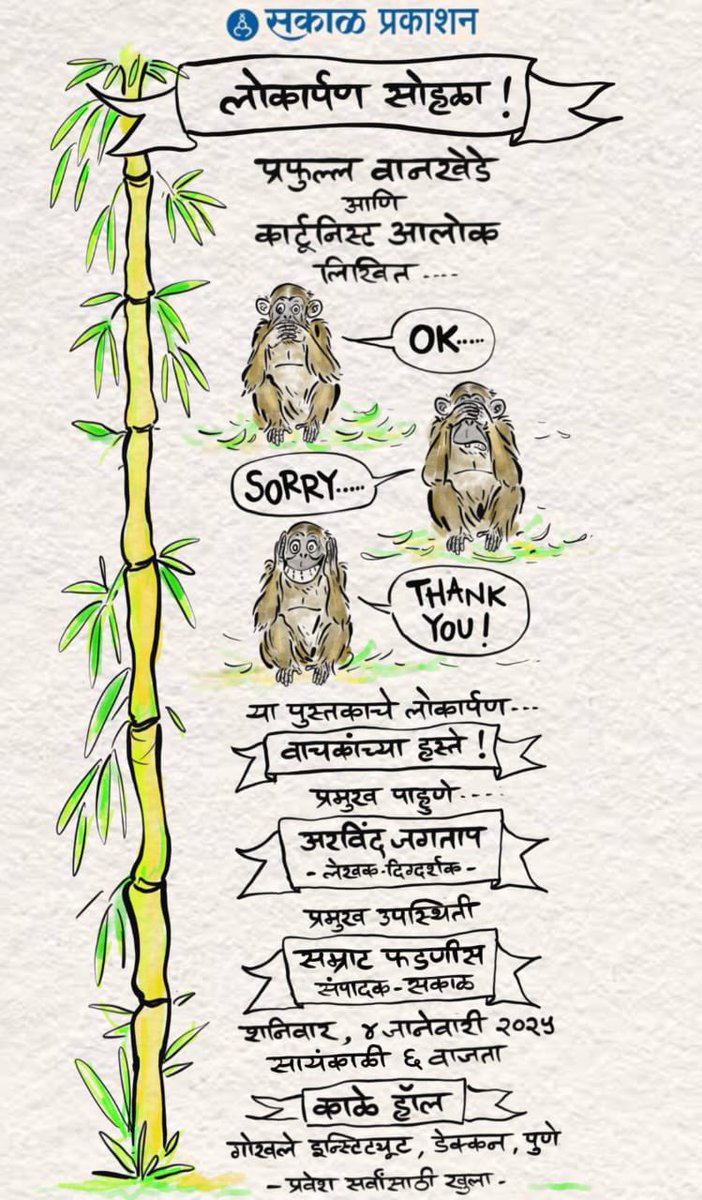 सकाळ प्रकाशन
लोकार्पण सोहळा !
प्रफुल्ल वानखेडे
आणि
कार्टूनिस्ट आलोक
लिखित ....
OK.....
SORRY.....
THANK
YOU!
या पुस्तकाचे लोकार्पण...
वाचकांच्या हस्ते !
प्रमुख पाहुणे....
अरविंद जगताप
- लेखक-दिग्दर्शक -
प्रमुख उपस्थिती
सम्राट फडणीस
संपादक - सकाळ
शनिवार, ४ जानेवारी २०२५
सायंकाळी ६ वाजता
काळे हॉल
गोखले इन्स्टिट्यूट, डेक्कन, पुणे
- प्रवेश सर्वांसाठी खुला -